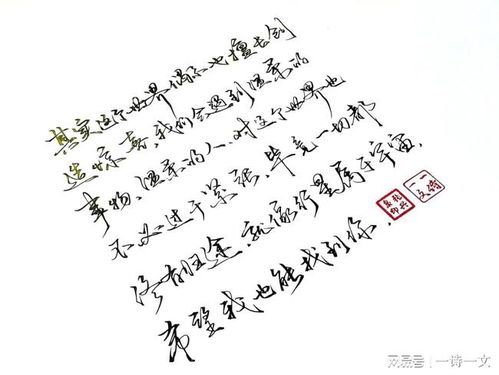 其实这个世界偶尔也擅长创
造惊喜,我们会遇到温柔的
事物,温柔的人,对这个世界也
不必过于紧张,毕竟一切都
终有归途,就像行星属于宇宙,
希望我也能找到你.
一诗一文
网易号 | 一诗一文